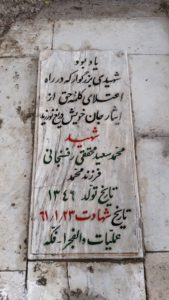 یادبود
شهیدی بزرگوار که در راه
اعتلای کلمه حق از
ایثار جان خویش دریغ نورزید
شهید
محمد سعید محققی رفسنجانی
فرزند محمد
تاریخ تولد ۱۳۴۶
تاریخ شهادت ۶۱/۱/۲۳
عملیات والفجر۱ فکه